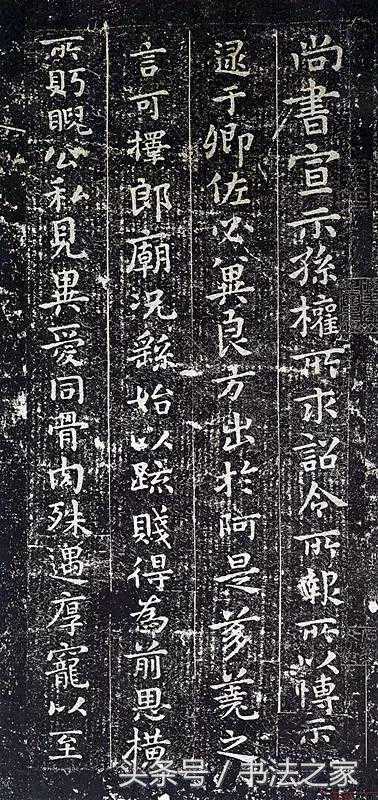 尚書宣示孫權所求詔令所報所以博示
逮于卿佐必冀良方出於阿是芻蕘之
言可擇郎廟況繇始以疏賤得為前恩橫
所眄睨公私見異愛同骨肉殊遇厚寵以至
头条号 / 书法之家